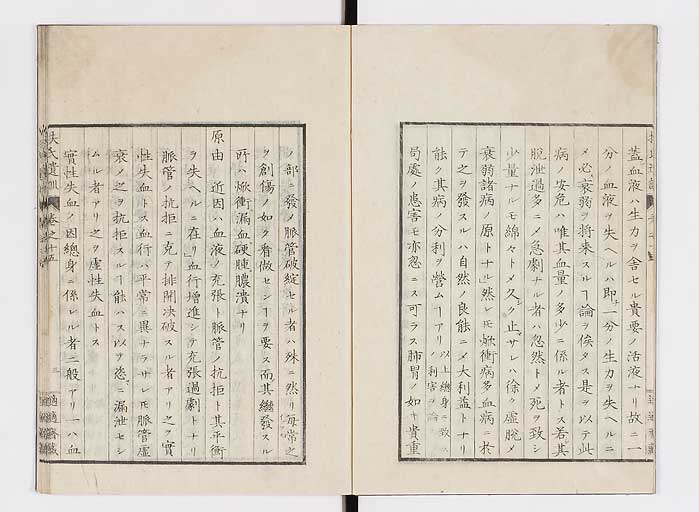 蓋血液ハ生力ヲ舎セル貴要ノ活液ナリ故ニ一
分ノ血液ヲ失ヘルハ即チ一分ノ生力ヲ失ヘルニ
メ必衰弱ヲ将来スルヿ論ヲ俟タス是ヲ以テ此
病ノ安危ハ唯其血量ノ多少ニ係ル者トス若其
脱泄過多ニメ急劇ナル者ハ忽然トメ死ヲ致シ
少量ナルモ綿々トメ久ク止サレハ徐ク虚脱メ
衰弱諸病ノ原トナル然レ𪜈焮衝病多血病ニ於
テ之ヲ發スルハ自然ノ良能ニメ大利益トナリ
能ク其病ノ分利ヲ營ムヿアリ以上總身ニ致ス利害ヲ論
局處ノ患害モ亦忽ニス可ラス肺胃ノ如キ貴重
ノ部ニ發メ脈管破綻セル者ハ殊ニ然リ毎常之
ヲ創傷ノ如ク看做センヿヲ要ス而其繼發スル
所ハ焮衝漏血硬腫膿潰ナリ
原由 近因ハ血液ノ充張ト脈管ノ抗拒ト其平衡
ヲ失ヘルニ在リ血行增進シテ充張過劇トナリ
脈管ノ抗拒ニ克テ排開决破スル者アリ之ヲ實
性失血トス血行ハ平常ニ異ナラサレ𪜈脈管虚
衰メ之ヲ抗拒スルヿ能ハス以ヲ恣ニ漏泄セシ
ムル者アリ之ヲ虚性失血トス
實性失血ノ因總身ニ係レル者二般アリ一ハ血
扶氏遺訓 卷之十五
二
適適齋藏